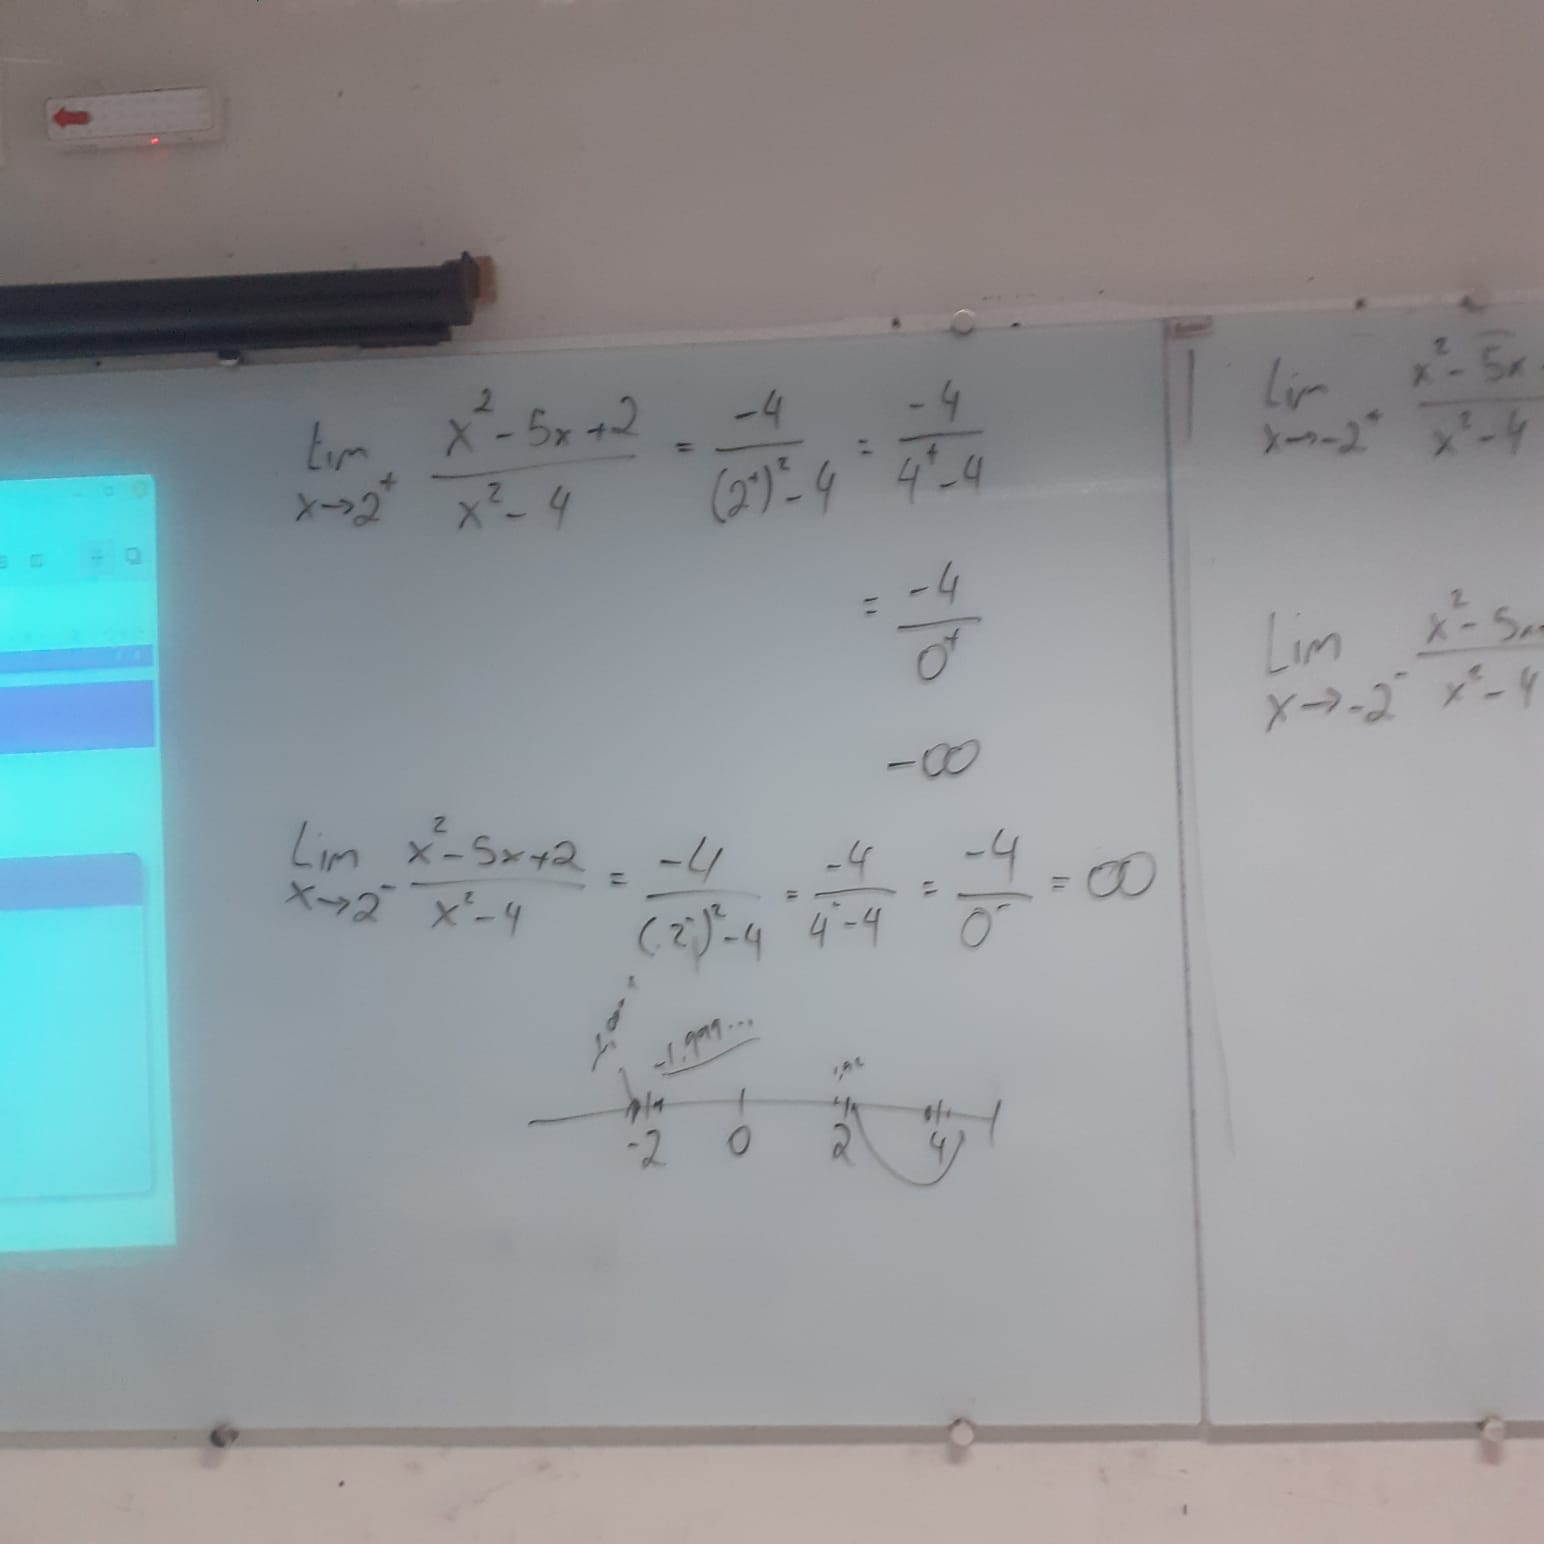 Lim x→2⁺ (x²-5x+2)/(x²-4) = -4/((2⁺)²-4) = -4/(4⁺-4)
= -4/0⁺
-∞
Lim x→2⁻ (x²-5x+2)/(x²-4) = -4/((2⁻)²-4) = -4/(4⁻-4) = -4/0⁻ = ∞
-1,999...
-2 0 2 4
Lim x→-2⁺ x²-5x / x²-4
Lim x→-2⁻ x²-5x / x²-4